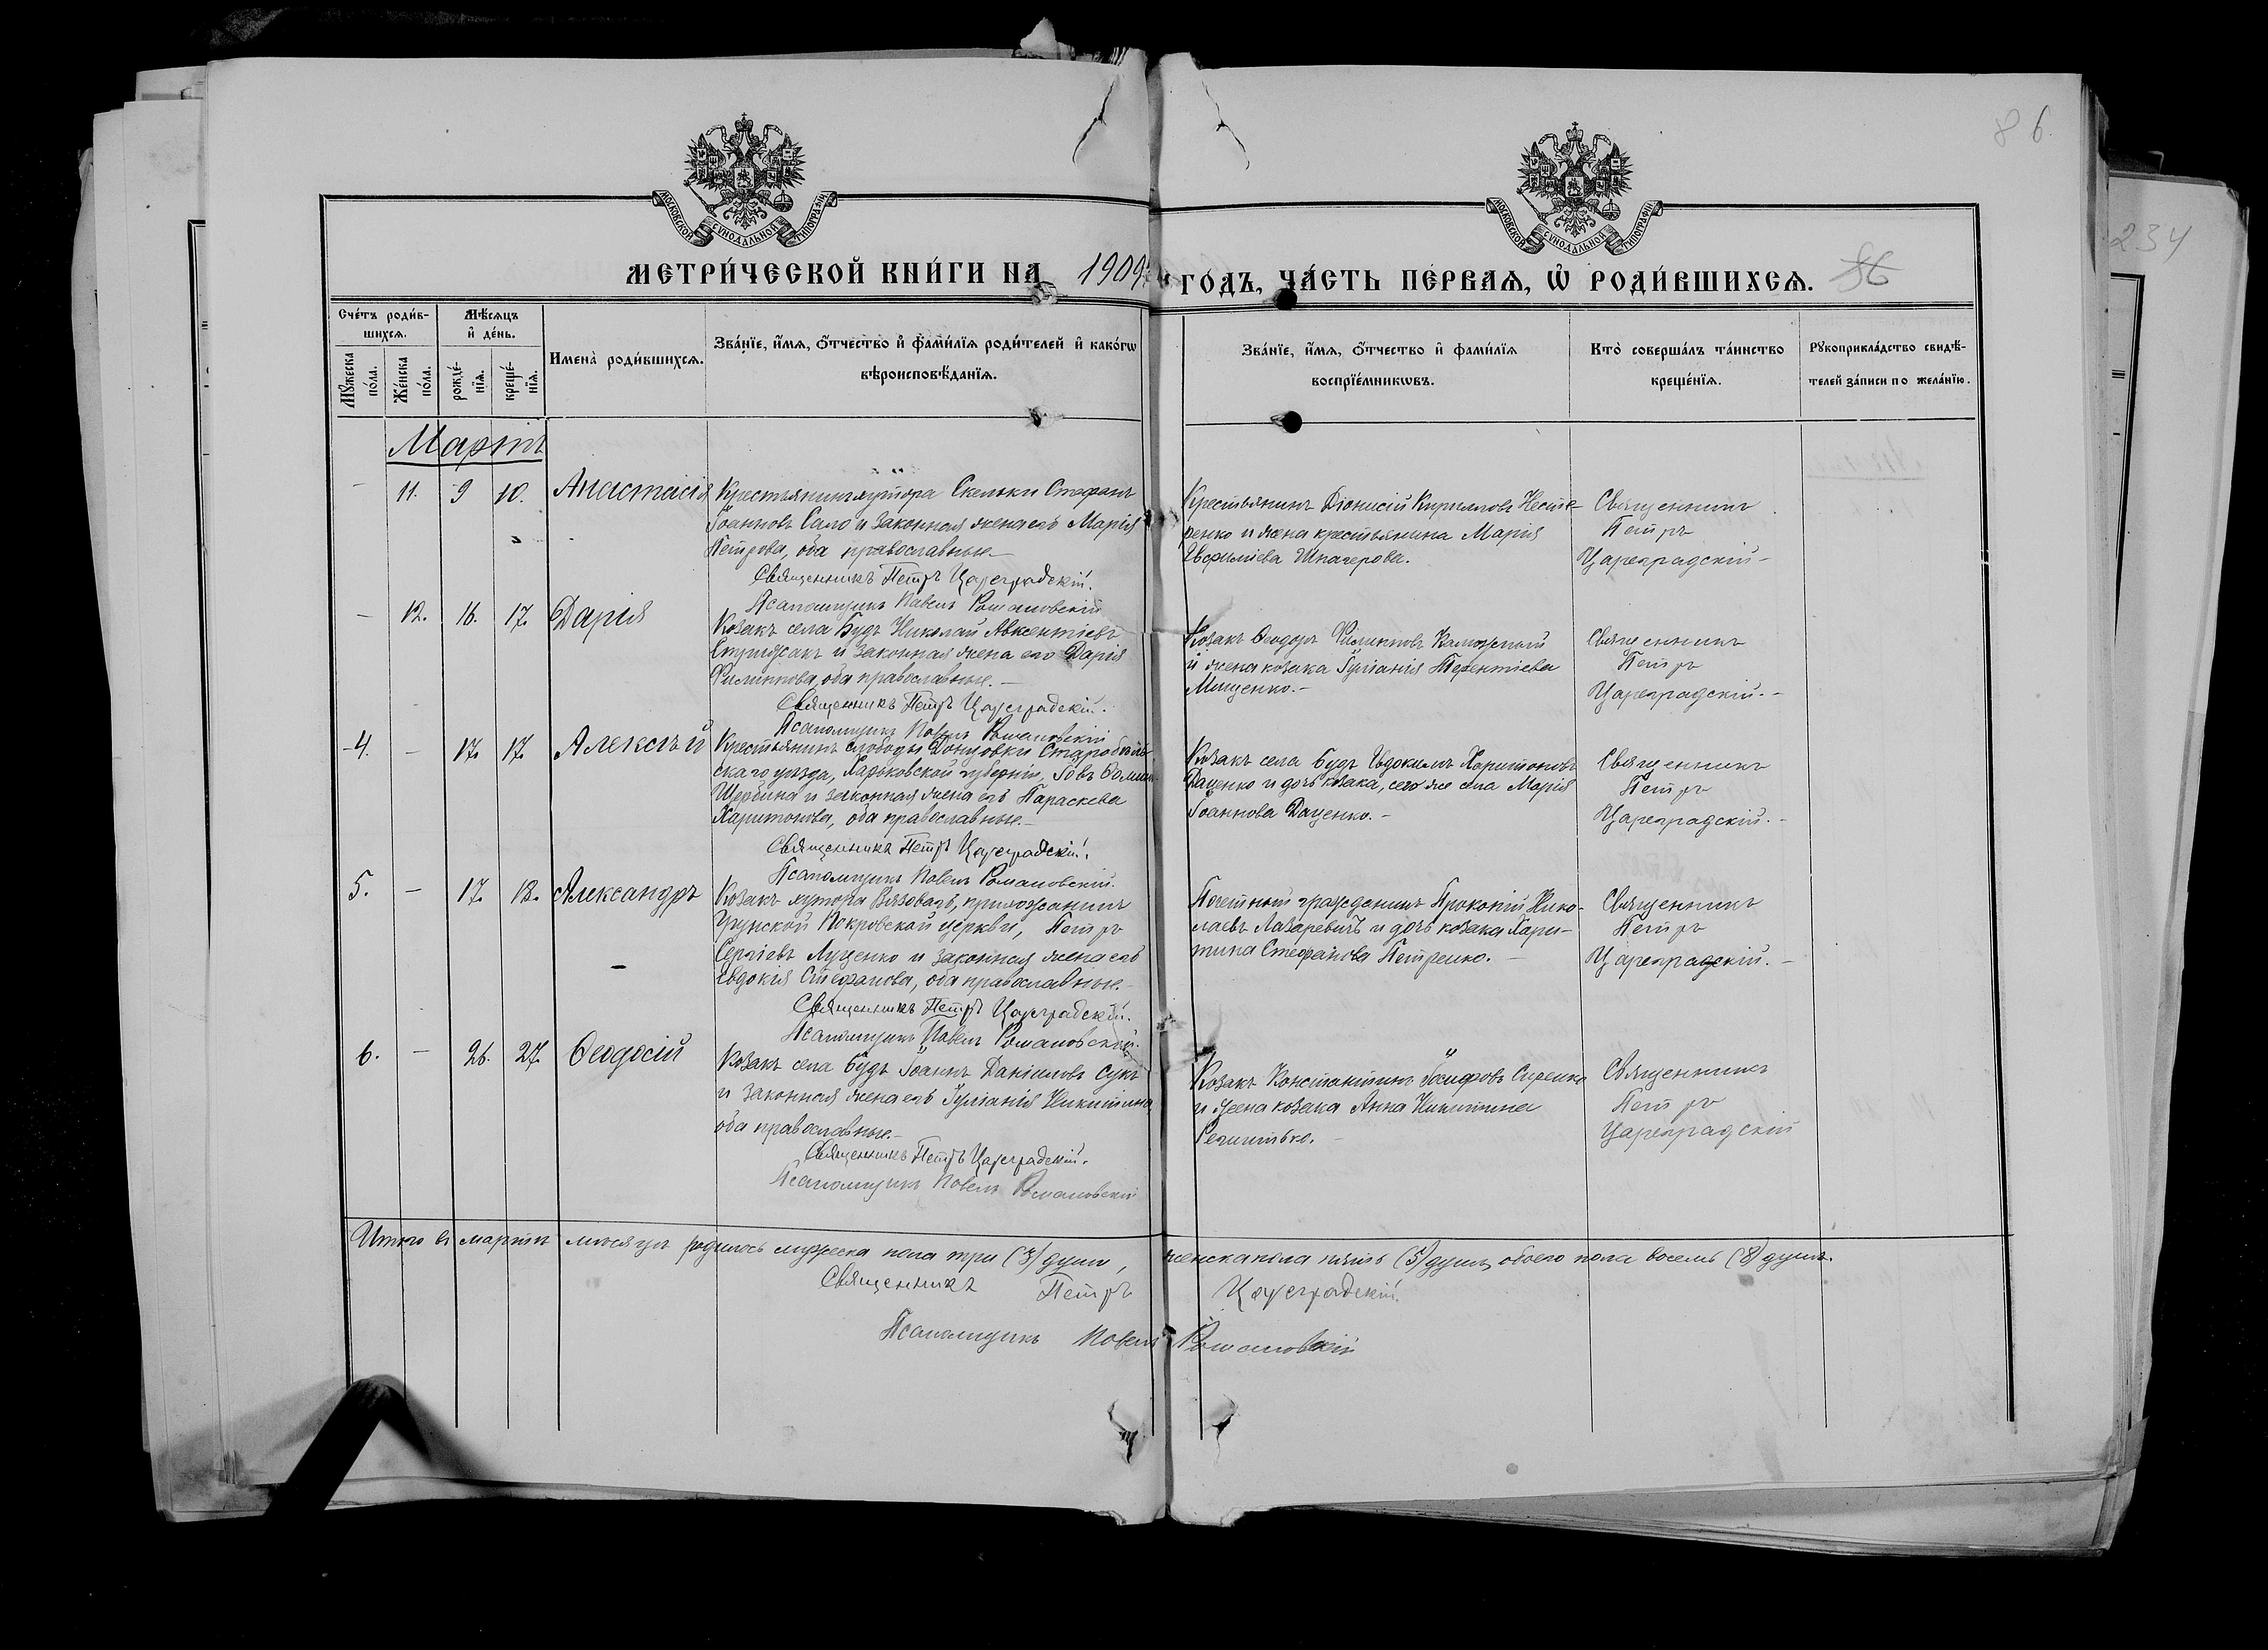 86.
234
МОСКОВСКОЙ СѴНОДАЛЬНОЙ ТИПОГРАФІИ
МОСКОВСКОЙ СѴНОДАЛЬНОЙ ТИПОГРАФІИ
МЕТРИ́ЧЕСКОЙ КНИ́ГИ НА 1909 ГОДЪ, ЧА́СТЬ ПЕ́РВАЯ, Ѡ РОДИ́ВШИХСЯ. 86
Сче́тъ роди́в-
шихся.
Мѣ́сяцъ
и де́нь.
Мꙋ́жеска по́ла.
Же́нска по́ла.
рожде́-
нїя.
креще́-
нїя.
Имена̀ роди́вшихся.
Зва́нїе, и́мя, о́тчество и фами́лїя роди́телей и како́гѡ
вѣроисповѣ́данїя.
Зва́нїе, и́мя, о́тчество и фами́лїя
воспрїе́мникѡвъ.
Кто̀ соверша́лъ та́инство
креще́нїя.
Рꙋкоприкла́дство свидѣ́-
телей за́писи по жела́нїю.
Мартъ
- 11. 9 10. Анастасія
Крестьянинъ хутора Скельки Стефанъ
Іоанновъ Сало и законная жена его Марія
Петрова, оба православные.-
Священникъ Петръ Цареградскій.
Псаломщикъ Павелъ Романовскій
Крестьянинъ Діонисій Кирилловъ Несте-
ренко и жена крестьянина Марія
Евфиміева Шкачерова.
Священникъ
Петръ
Цареградскій-
- 12. 16. 17. Дарія
Козакъ села Будъ Николай Авксентіевъ
и законная жена его Дарія
Филиппова, оба православные.-
Священникъ Петръ Цареградскій.
Псаломщикъ Павелъ Романовскій
Козакъ Ѳеодоръ Филипповъ Калюжный
и жена козака Іуліанія Терентіева
Мищенко.-
Священникъ
Петръ
Цареградскій.-
-4. - 17. 17. Алексѣй
Крестьянинъ слободы Донцовки Старобѣль-
скаго уѣзда, Харьковской губерніи, Іовъ Ѳоминъ
Щербина и законная жена его Параскева
Харитонова, оба православные.-
Священникъ Петръ Цареградскій.
Псаломщикъ Павелъ Романовскій.
Козакъ села Будъ Евдокимъ Харитоновъ
Даценко и дочь козака, сего же села Марія
Іоаннова Даценко.-
Священникъ
Петръ
Цареградскій.-
5. - 17. 18. Александръ
Козакъ хутора Вязоваго, прихожанинъ
Грунской Покровской церкви, Петръ
Сергіевъ Луценко и законная жена его
Евдокія Стефанова, оба православные.-
Священникъ Петръ Цареградскій.
Псаломщикъ Павелъ Романовскій.
Почетный гражданинъ Прокопій Нико-
лаевъ Лазаревичъ и дочь козака Хари-
тина Стефанова Петренко.-
Священникъ
Петръ
Цареградскій.-
6. - 26. 27. Ѳеодосій
Козакъ села Будъ Іоаннъ Даніиловъ Сукъ
и законная жена его Іуліанія Никитина
оба православные.-
Священникъ Петръ Цареградскій.
Псаломщикъ Павелъ Романовскій
Козакъ Константинъ Іосифовъ Сиренко
и жена козака Анна Никитина
Священникъ
Петръ
Цареградскій
Итого въ мартѣ мѣсяцѣ родилось мужеска пола три (3) души, женска пола пять (5) душъ, обоего пола восемь (8) душъ.
Священникъ Петръ Цареградскій.
Псаломщикъ Павелъ Романовскій